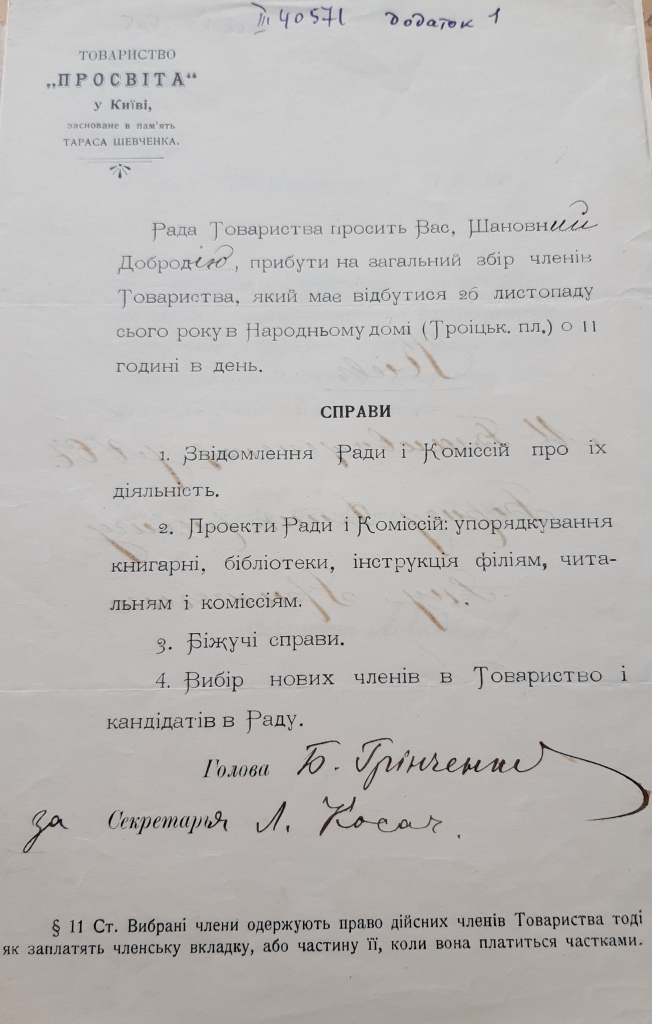 III 40571 Додаток 1
ТОВАРИСТВО
„ПРОСВІТА“
у Київі,
засноване в пам'ять
ТАРАСА ШЕВЧЕНКА.
Рада Товариства просить Вас, Шановний
Добродію, прибути на загальний збір членів
Товариства, який має відбутися 26 листопаду
сього року в Народньому домі (Троіцьк. пл.) о 11
годині в день.
СПРАВИ
1. Звідомлення Ради і Коміссій про іх
діяльність.
2. Проекти Ради і Коміссій: упорядкування
книгарні, бібліотеки, інструкція філіям, чита-
льням і коміссіям.
3. Біжучі справи.
4. Вибір нових членів в Товариство і
кандідатів в Раду.
Голова Б. Грінченко
за Секретарья Л. Косач.
§ 11 Ст. Вибрані члени одержують право дійсних членів Товариства тоді
як заплатять членську вкладку, або частину її, коли вона платиться частками.